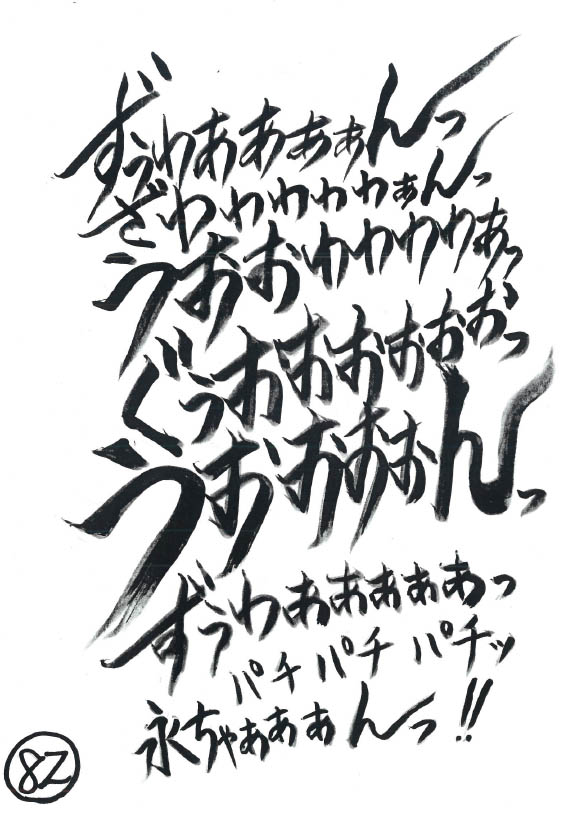 ずぅわあああぁんっ
ざわわわわわぁんっ
うおおわわわわあっ
ぐぅおおおおおおっ
うおおおおんっ
ずぅわあああああっ
パチパチパチッ
永ちゃぁぁぁんっ!!
82